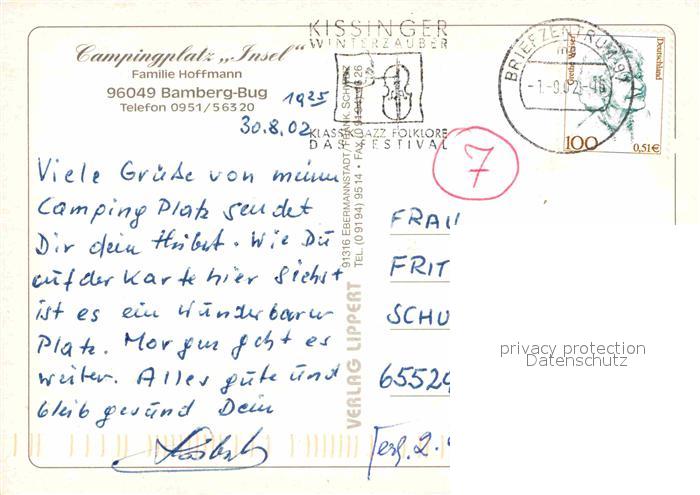 Campingplatz „Insel"
Familie Hoffmann
96049 Bamberg-Bug
Telefon 0951/56320
1925
30.8.02
Viele Grüße von meinem
Camping Platz sendet
Dir dein Hubert. Wie Du
auf der Karte hier siehst
ist es ein wunderbarer
Platz. Morgen geht es
weiter. Alles gute und
bleib gesund Dein
KISSINGER
WINTERZAUBER
KLASSIK JAZZ FOLKLORE
DAS FESTIVAL
BRIEFZENTRUM 97
-1.-9.02-
Deutschland
100
0,51€
7
VERLAG LIPPERT
91316 EBERMANNSTADT
TEL. (09194) 9514 • FAX (09194)
FRAU
FRIT
SCHU
65529
privacy protection
Datenschutz